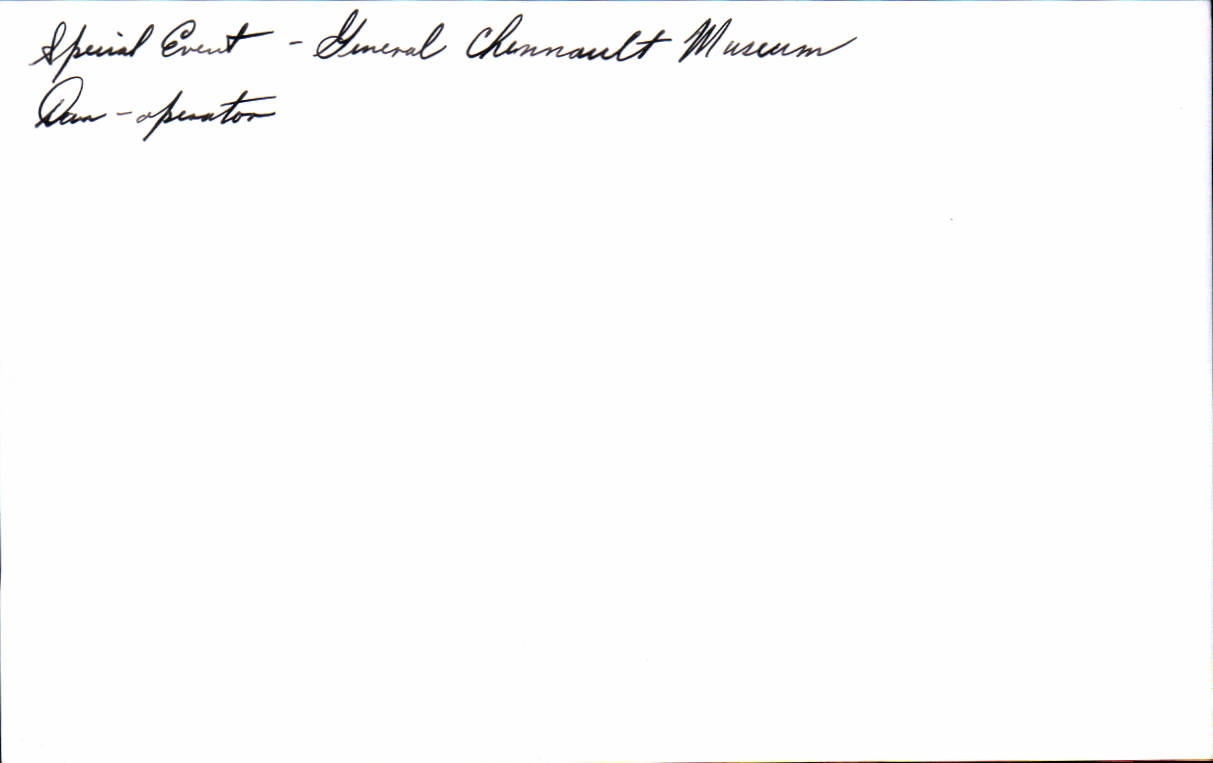 Special Event - General Chennault Museum
Dan - operator